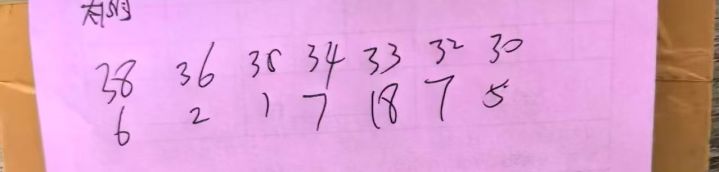 38 36 35 34 33 32 30
6 2 1 7 18 7 5